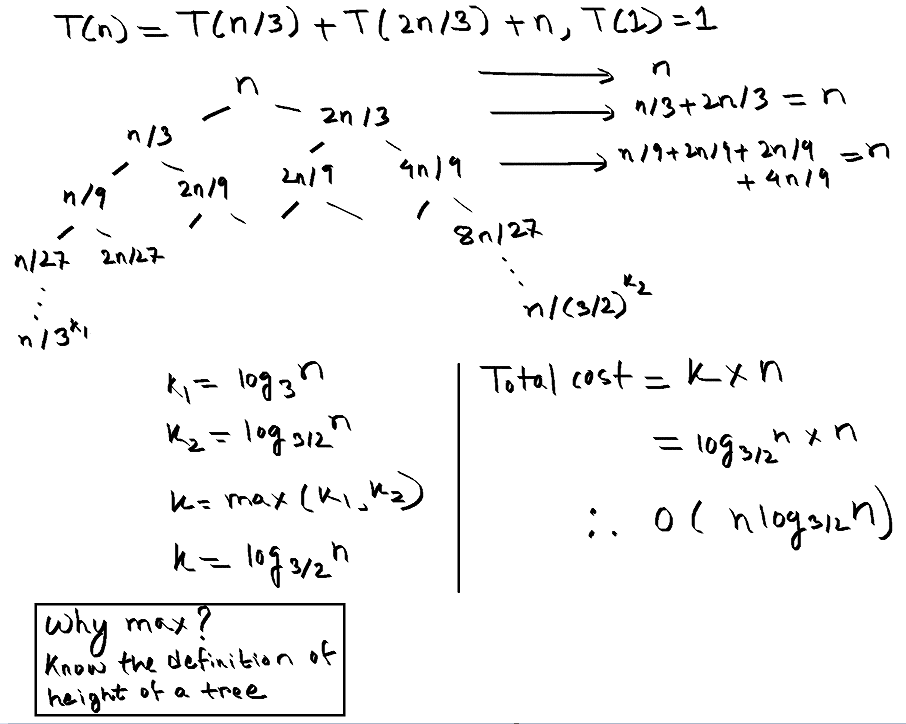 T(n) = T(n/3) + T(2n/3) + n, T(1) = 1
n → n
n/3 2n/3 → n/3 + 2n/3 = n
n/9 2n/9 2n/9 4n/9 → n/9 + 2n/9 + 2n/9 + 4n/9 = n
n/27 2n/27 8n/27
n/3^k₁ n/(3/2)^k₂
k₁ = log₃ n
k₂ = log₃/₂ n
k = max (k₁, k₂)
k = log₃/₂ n
Total cost = k × n
= log₃/₂ n × n
∴ O( n log₃/₂ n)
Why max?
Know the definition of
height of a tree